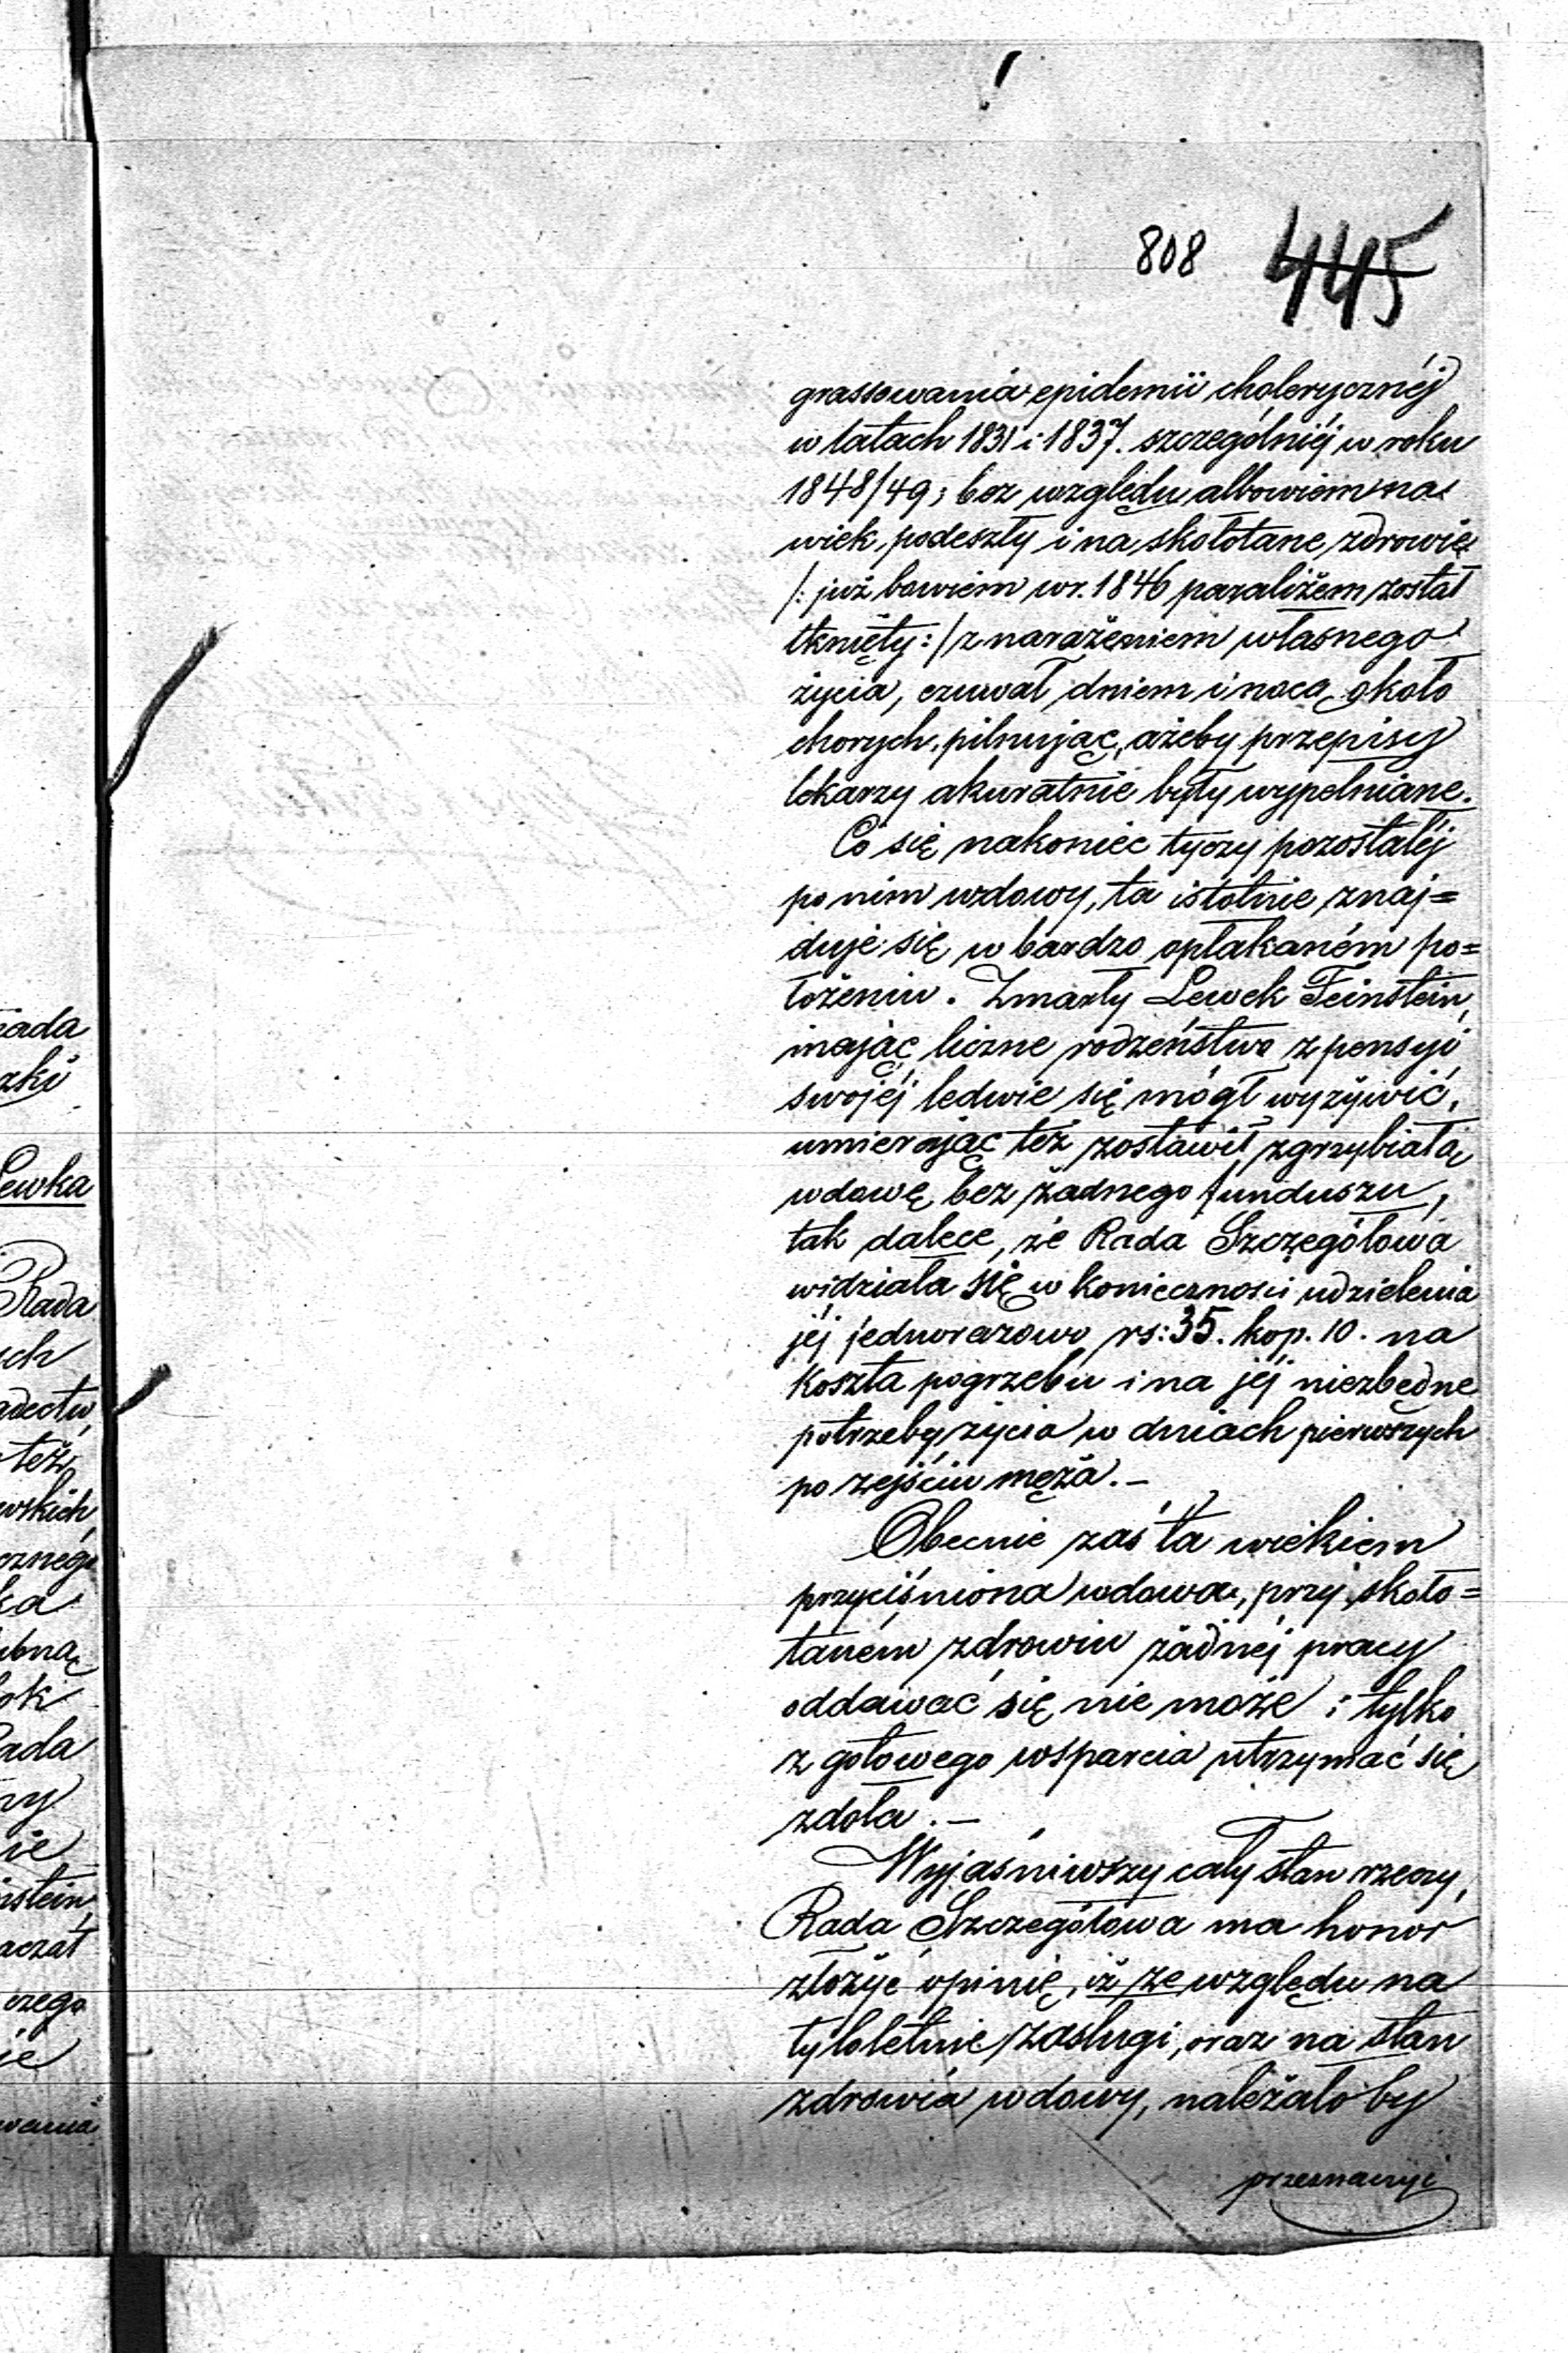 808 445
grassowania epidemii cholerycznéj
w latach 1831 i 1837. szczególniéj w roku
1848/49; bez względu albowiem na
wiek podeszły i na skołotane zdrowie
/: już bowiem w r. 1846 paraliżem został
tknięty :/ z narażeniem własnego
życia, czuwał dniem i nocą około
chorych, pilnując, ażeby przepisy
lekarzy akuratnie były wypełniane.
Co się nakoniec tyczy pozostałéj
po nim wdowy, ta istotnie znaj=
duje się w bardzo opłakaném po=
łożeniu. Zmarły Lewek Feinstein,
mając liczne rodzeństwo z pensyi
swojéj ledwie się mógł wyżywić,
umierając też zostawił zgrzybiałą
wdowę bez żadnego funduszu,
tak dalece, że Rada Szczegółowa
widziała się w konieczności udzielenia
jéj jednorazowo rs: 35. kop. 10. na
koszta pogrzebu i na jéj niezbędne
potrzeby życia w dniach pierwszych
po zejściu męża. –
Obecnie zaś ta wiekiem
przyciśniona wdowa, przy skoło=
taném zdrowiu żadnéj pracy
oddawać się nie może i tylko
z gotowego wsparcia utrzymać się
zdoła. –
Wyjaśniwszy cały stan rzeczy,
Rada Szczegółowa ma honor
złożyć opinię, iż ze względu na
tyloletnie zasługi, oraz na stan
zdrowia wdowy, należało by
rada
zki
Lewka
Rada
ych
też,
wskich,
ka
ubną
ok
Rada
ny
nie
nstein,
aczał
czego
je